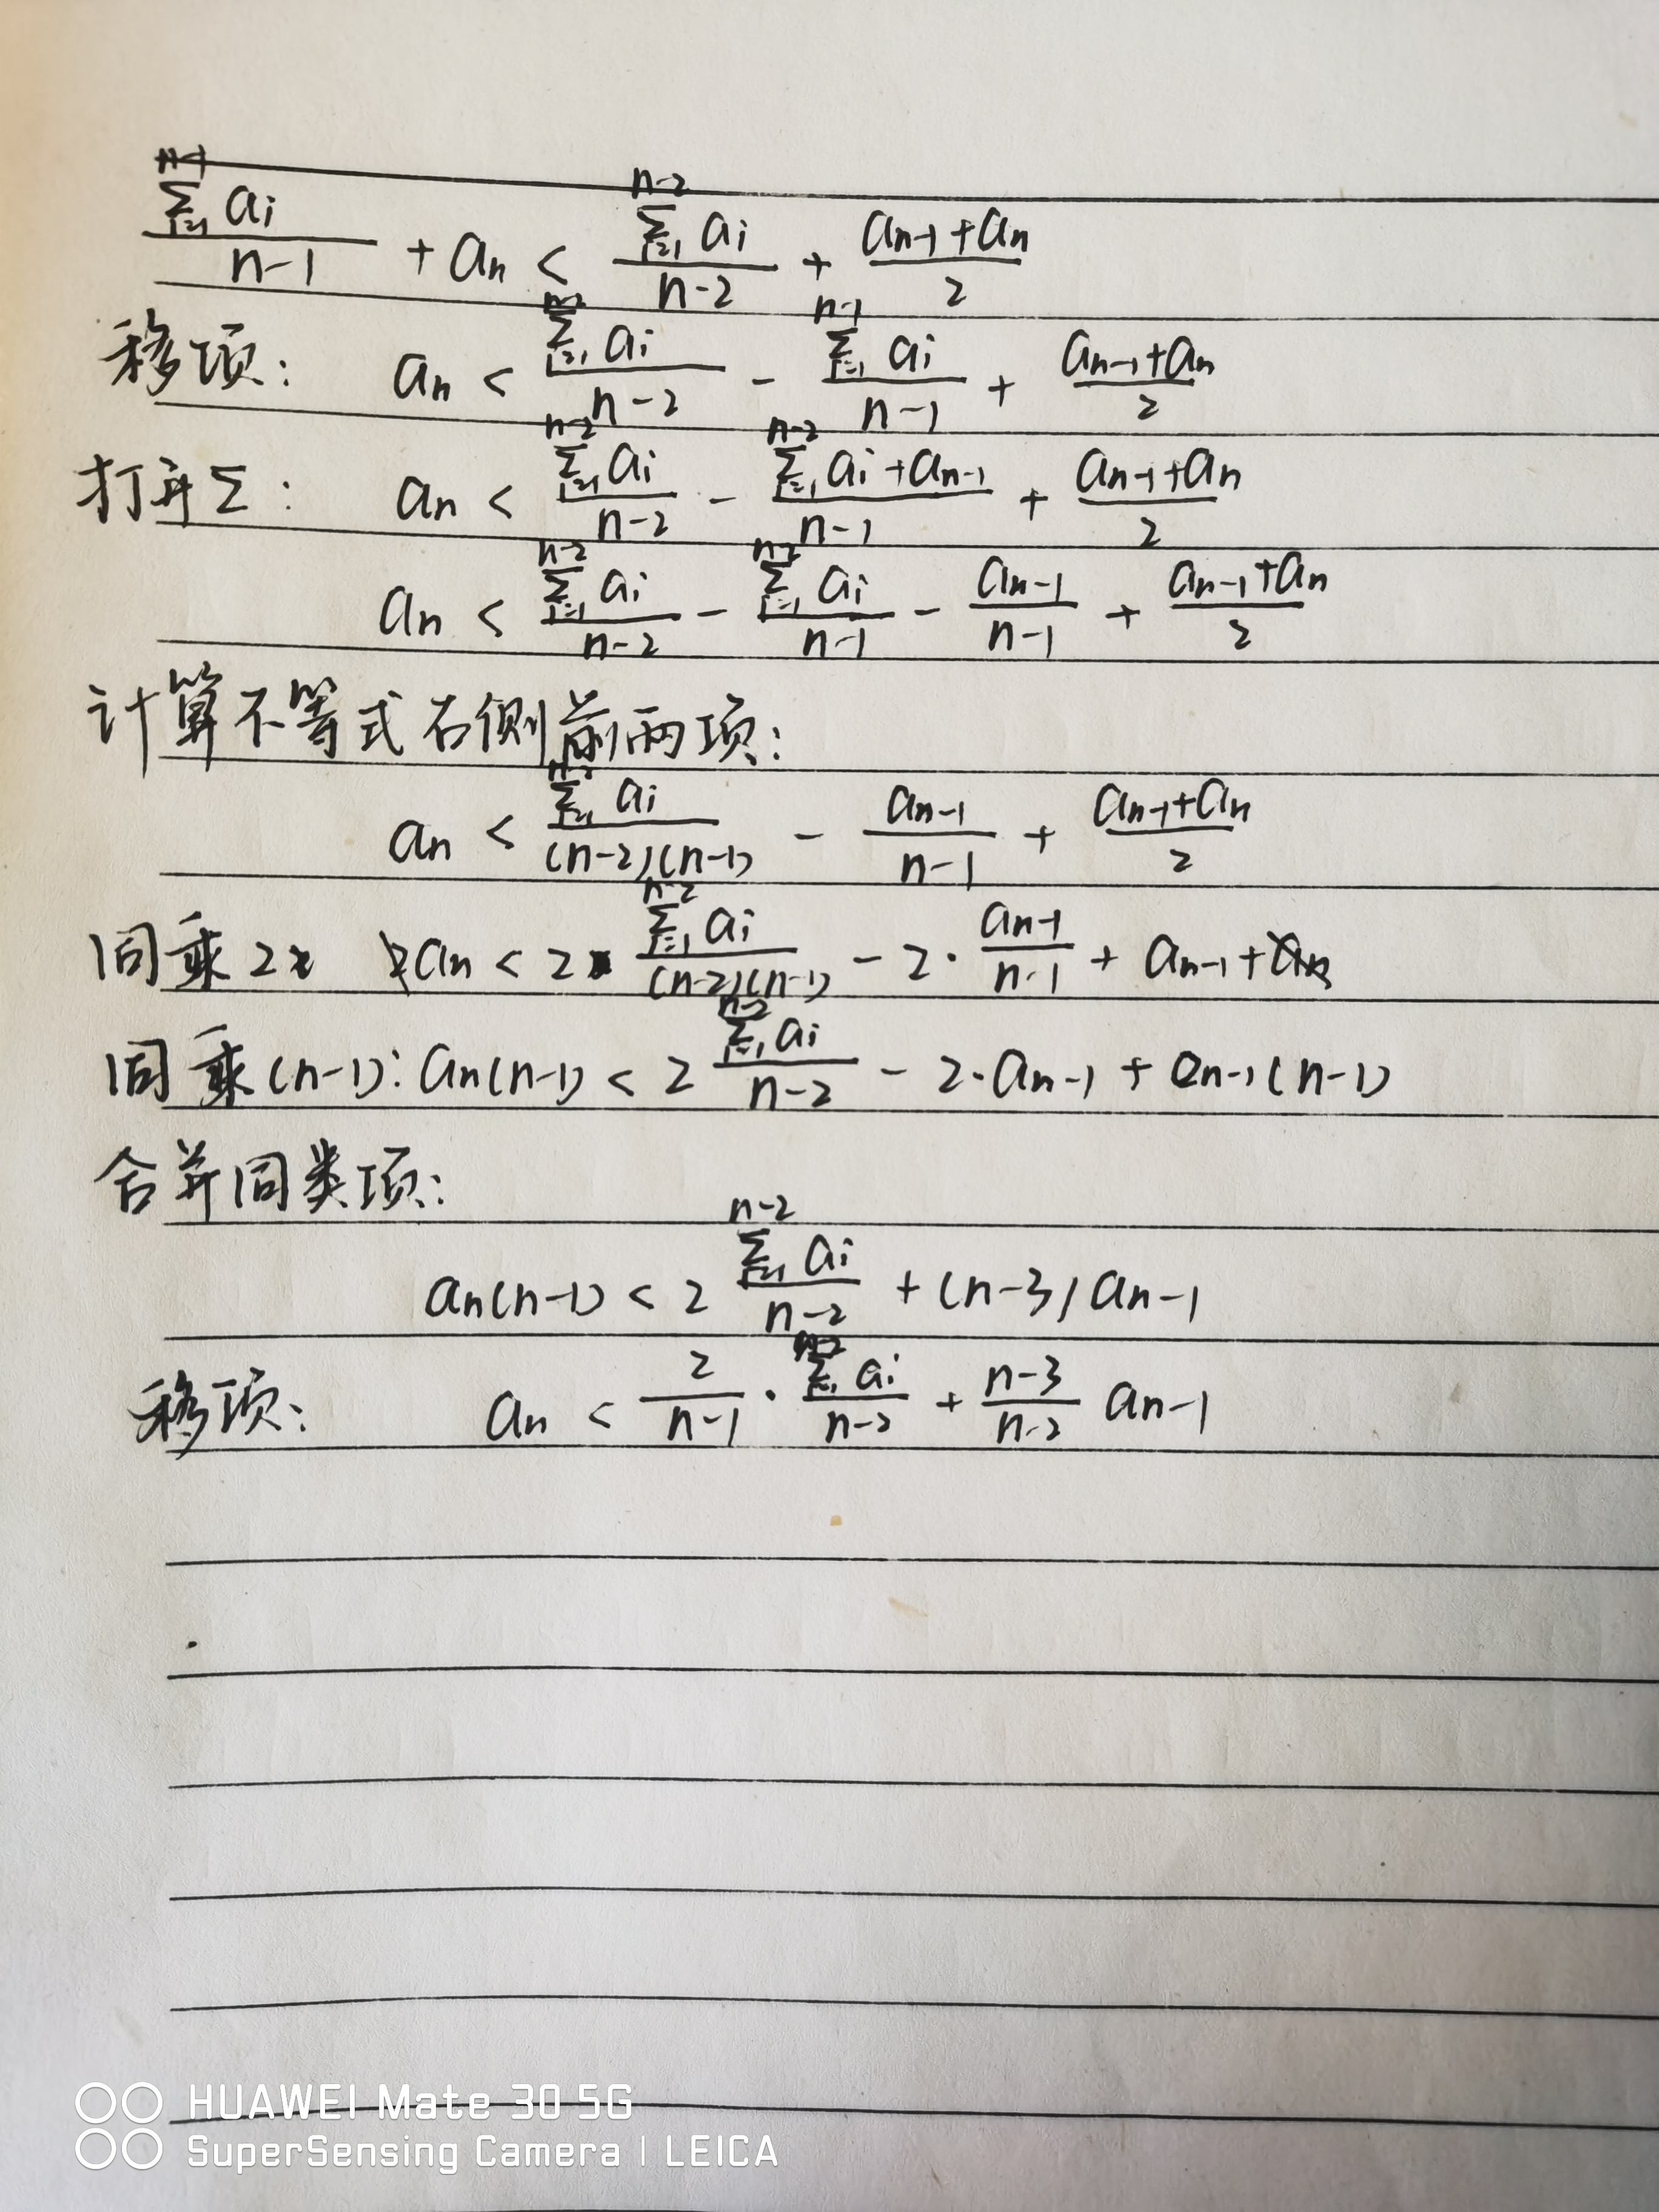 \frac{\sum_{i=1}^{n-1} a_i}{n-1} + a_n < \frac{\sum_{i=1}^{n-2} a_i}{n-2} + \frac{a_{n-1}+a_n}{2}
移项: a_n < \frac{\sum_{i=1}^{n-2} a_i}{n-2} - \frac{\sum_{i=1}^{n-1} a_i}{n-1} + \frac{a_{n-1}+a_n}{2}
打开Σ: a_n < \frac{\sum_{i=1}^{n-2} a_i}{n-2} - \frac{\sum_{i=1}^{n-2} a_i + a_{n-1}}{n-1} + \frac{a_{n-1}+a_n}{2}
a_n < \frac{\sum_{i=1}^{n-2} a_i}{n-2} - \frac{\sum_{i=1}^{n-2} a_i}{n-1} - \frac{a_{n-1}}{n-1} + \frac{a_{n-1}+a_n}{2}
计算不等式右侧前两项:
a_n < \frac{\sum_{i=1}^{n-2} a_i}{(n-2)(n-1)} - \frac{a_{n-1}}{n-1} + \frac{a_{n-1}+a_n}{2}
同乘2: a_n < 2 \frac{\sum_{i=1}^{n-2} a_i}{(n-2)(n-1)} - 2·\frac{a_{n-1}}{n-1} + a_{n-1}
同乘(n-1): a_n(n-1) < 2 \frac{\sum_{i=1}^{n-2} a_i}{n-2} - 2·a_{n-1} + a_{n-1}(n-1)
合并同类项:
a_n(n-1) < 2 \frac{\sum_{i=1}^{n-2} a_i}{n-2} + (n-3)a_{n-1}
移项: a_n < \frac{2}{n-1} · \frac{\sum_{i=1}^{n-2} a_i}{n-2} + \frac{n-3}{n-2} a_{n-1}
HUAWEI Mate 30 5G
SuperSensing Camera | LEICA